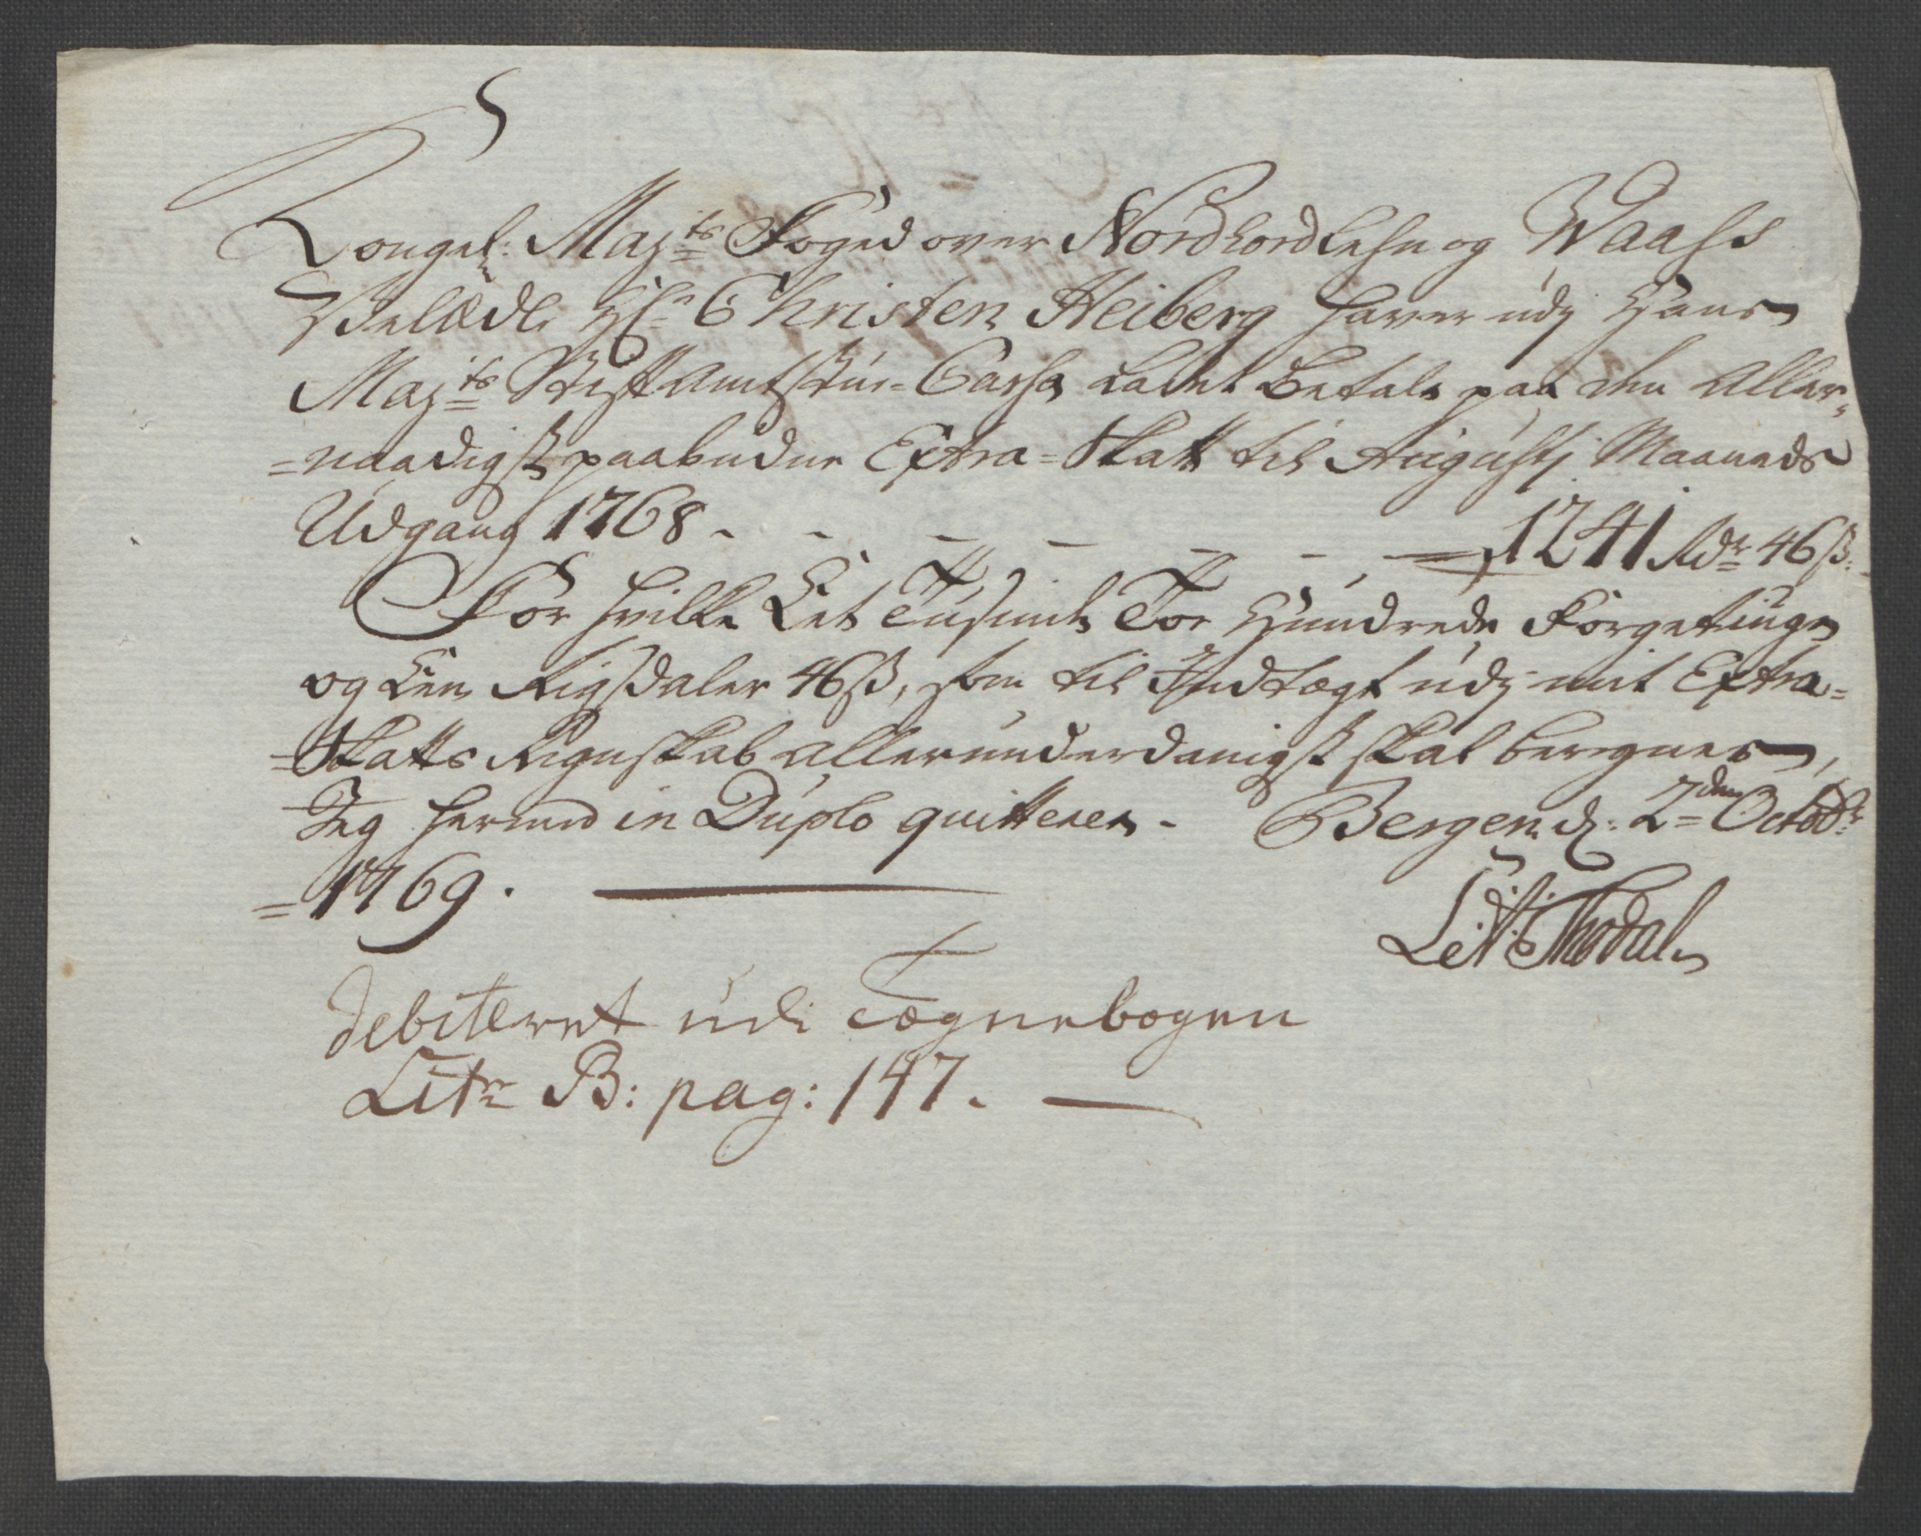 Kongel: Maj:ts Foged over Nordhordlehn og Waass
Velædle Hr Christen Heiberg haver udj Hans
Maj:ts Stiftamtstue-Cassa ladet betale paa den Aller-
=naadigst paabudne Extra-Skatt til Augustj Maaneds
Udgang 1768 - - - - - - - 1241 Rdr 46 ß:
For hvilke Eet Tusinde Toe Hundrede Førgetiuge
og Een Rigsdaler 46 ß, som til Indtægt udj mit Extra-
=Skatts Regnskab allerunderdanigst skal beregnes,
Jeg hermed in Duplo quitterer. Bergen d: 2den Octobr:
=1769.
Thodal
debiteret udi Tægnebogen
Litr B: pag: 147.